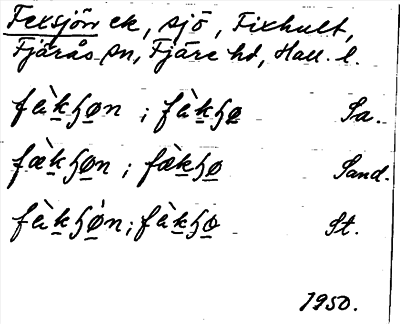 Fexsjön ek, sjö, Fixhult,
Fjärås sn, Fjäre hd, Hall. l.
fàkɧøn ; fàkɧø Sa.
fækɧøn ; fækɧø Sand.
fàkɧøn ; fàkɧø St.
1950.